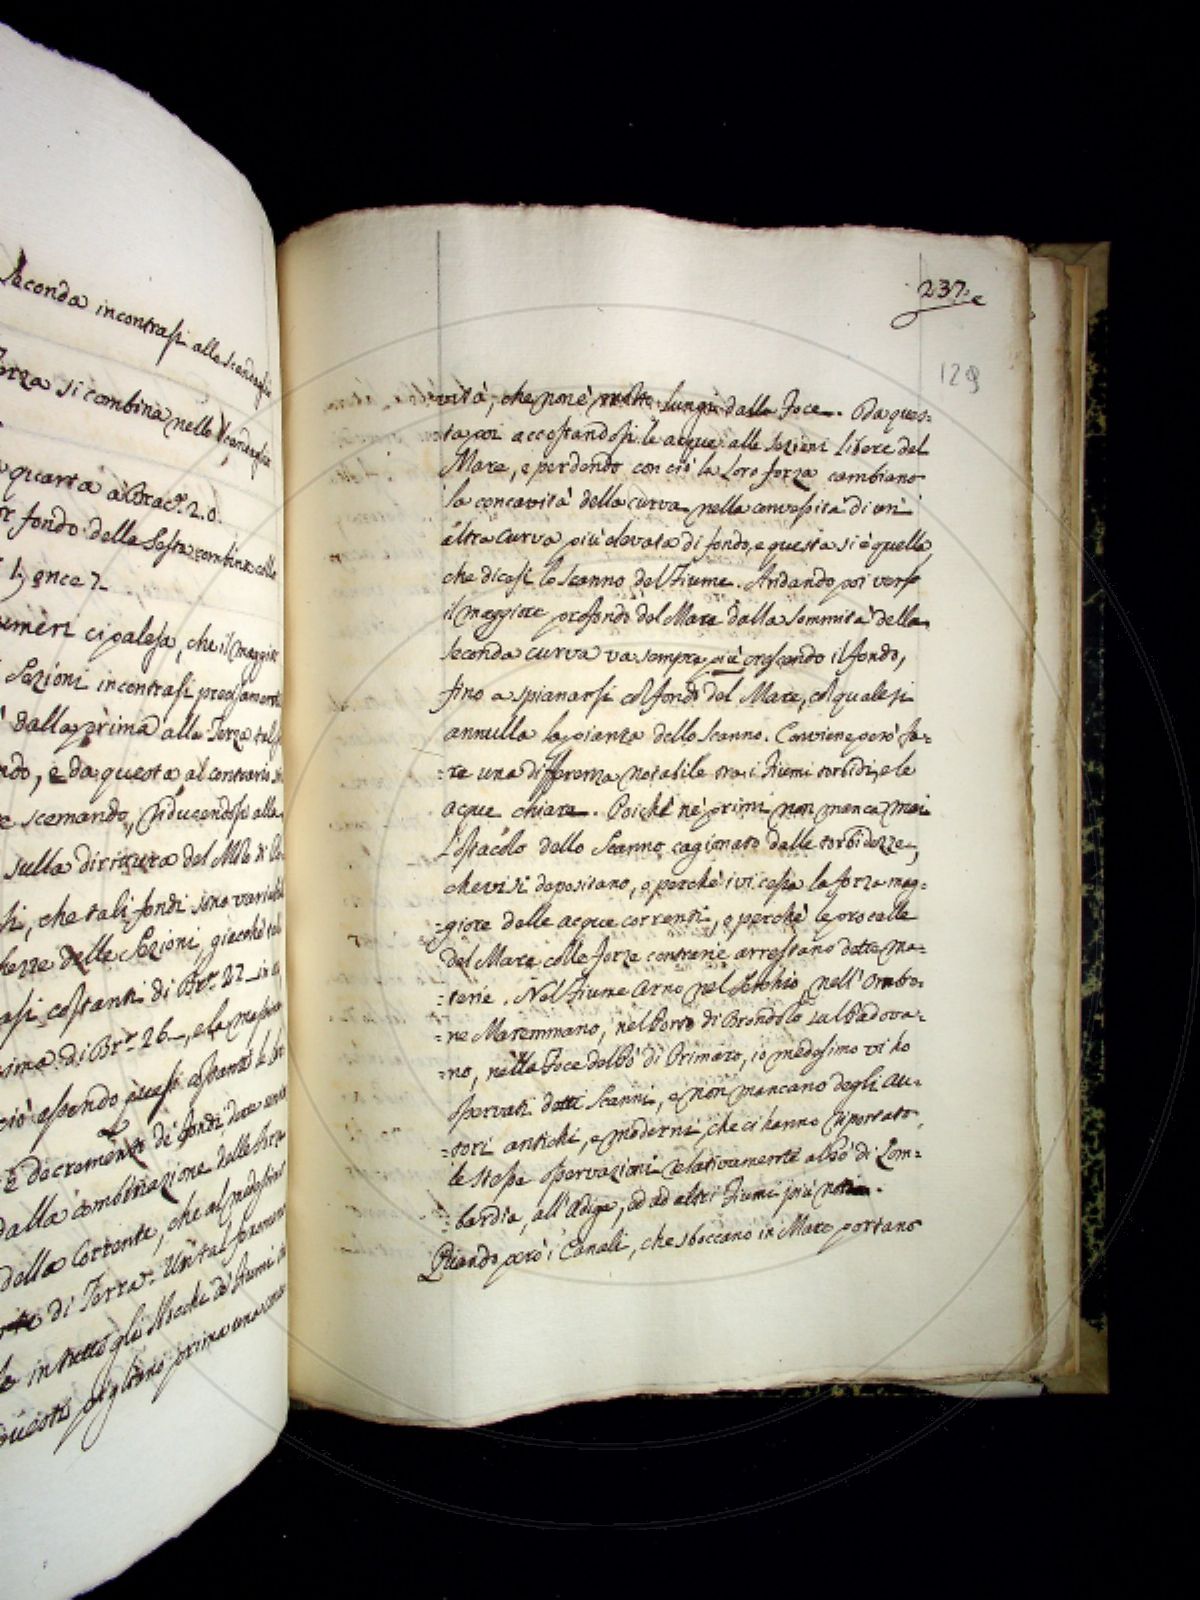 Seconda incontrasi alle scandaglie
Forza si combina nello scandaglio
quarta a Brac. 2.0.
fondo della Sesta combina colle
13 once 2
numeri ci palesa, che il maggior
Sezioni incontrasi precisamente
dalla prima alla Terza tal
ndo, e da questa al contrario
e scemando, riducendosi alla
sulla dirittura del Molo di
si, che tali fondi sono variabili
hezze delle Sezioni, giacchè
asi costanti di Br. 22 in
sima di Br. 26, e la massima
ciò essendo quasi costanti le
E decrementi di fondi, dove
dalla combinazione delle forze
della Corrente, che al medesimo
di Terra. Un tal fenomeno
in tutte gli Sbocchi de' Fiumi
queste pigliano prima una conca-
237.
129
vità, che non è molto lungi dalla Foce. Da ques-
ta poi accostandosi le acque alle Sezioni libere del
Mare, e perdendo con ciò la loro forza cambiano
la concavità della curva nella convessità di un'
altra Curva più elevata di fondo, e questa si è quella,
che dicesi lo Scanno del Fiume. Andando poi verso
il maggiore profondo del Mare dalla sommità della
seconda curva va sempre più crescendo il fondo,
fino a spianarsi col fondo del Mare, col quale si
annulla la pianta dello Scanno. Conviene però fa-
=re una differenza notabile tra i Fiumi torbidi, e le
acque chiare. Poichè nè primi non manca mai
l'ostacolo dello Scanno cagionato dalle torbidezze,
che vi si depositano, o perchè ivi cessa la forza mag-
=giore delle acque correnti, o perchè le procelle
del Mare colle forze contrarie arrestano dette ma-
=terie. Nel Fiume Arno nel Serchio, nell'Ombro-
=ne Maremmano, nel Porto di Brondolo sul Padova-
=no, nella Foce del Pò di Primaro, io medesimo vi ho
osservati detti Scanni, e non mancano degli Au-
=tori antichi, e moderni che ci hanno riportato
le stesse osservazioni relativamente al Pò di Lom-
=bardia, all'Adige, ed ad altri Fiumi più noti.
Quando però i Canali, che sboccano in Mare portano